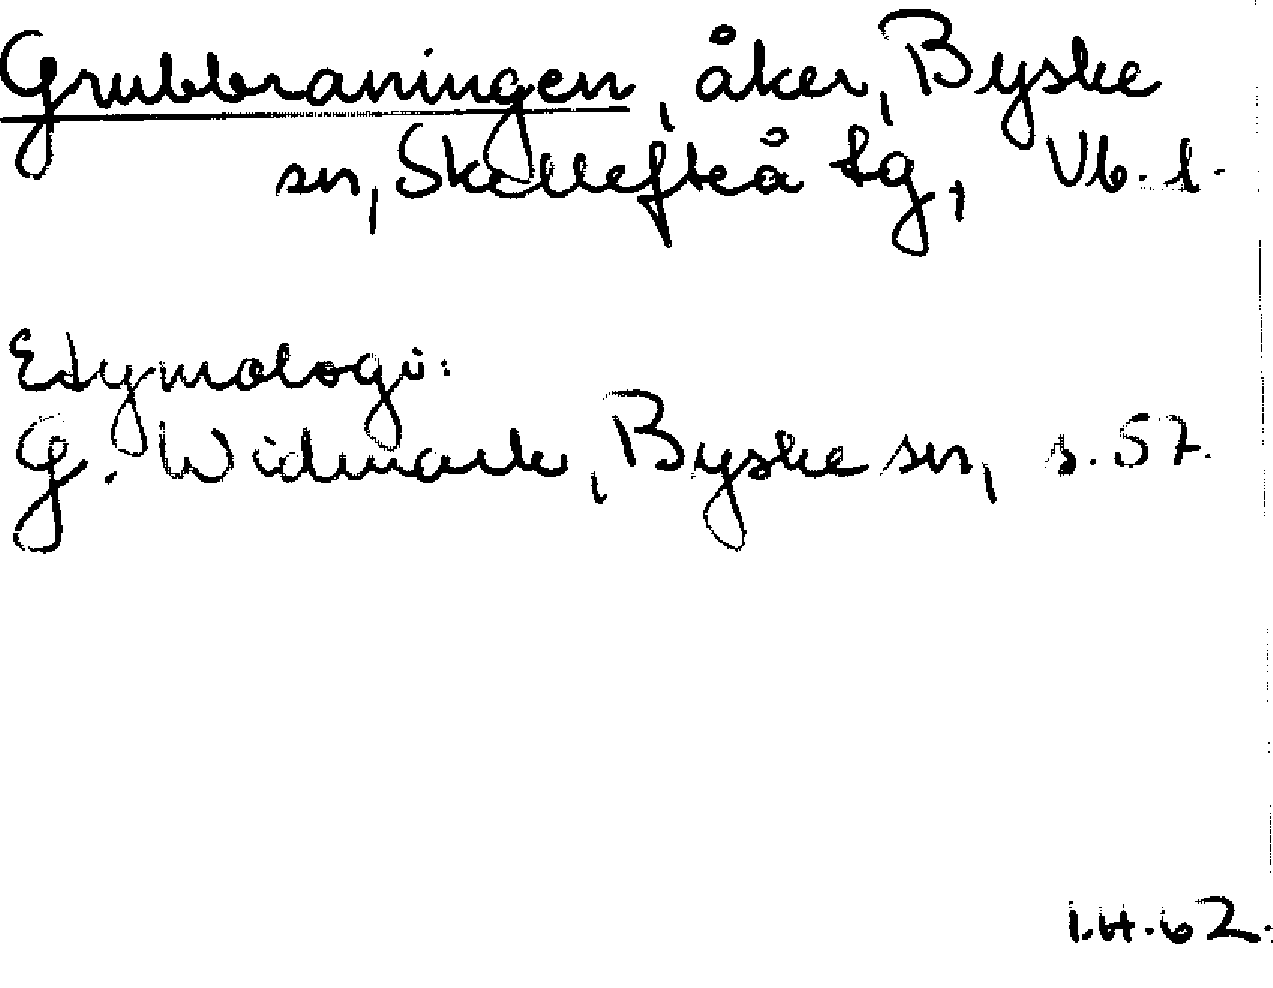 Grubbraningen, åker, Byske
sn, Skellefteå tg, Vb. l.
Etymologi:
G. Widmark, Byske sn, s. 57.
I.H.62.